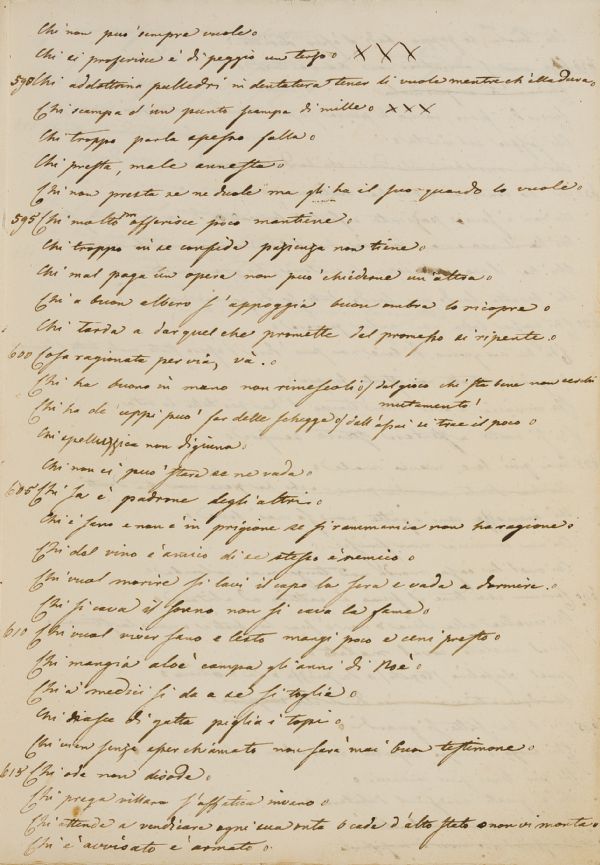 Chi non può sempre vuole.
Chi si proferisce è di peggio un terzo. XXX
590 Chi addottrina pulledri in dentatura tener li vuole mentre ch'ella dura.
Chi scampa d'un punto scampa di mille. XXX
Chi troppo parla spesso falla.
Chi presta, male annesta.
Chi non presta se ne duole ma gli ha il suo quando lo vuole.
595 Chi molto offerisce poco mantiene.
Chi troppo in se confida pazienza non tiene.
Chi mal paga un opera non può chiederne un'altra.
Chi a buon albero s'appoggia buon ombra lo ricopre.
Chi tarda a dar quel che promette del promesso si ripente.
600 Cosa ragionata per via, và.
Chi ha buono in mano non rimescoli / dal gioco chi sta bene non cerchi
mutamento!
Chi ha de' ceppi può far delle schegge / dall'assai si trae il poco.
Chi spelluzzica non digiuna.
Chi non ci può stare se ne vada.
605 Chi sa è padrone degli altri.
Chi è sano e non è in prigione se si rammarica non ha ragione.
Chi del vino è amico di se stesso è nemico.
Chi vuol morire si lavi il capo la sera e vada a dormire.
Chi si cava il sonno non si cava la fame.
610 Chi vuol viver sano e lesto mangi poco e ceni presto.
Chi mangia aloè campa gli anni di Noè.
Chi a medici si da a se si toglie.
Chi nasce di gatta piglia i topi.
Chi vien senza esser chiamato non sarà mai buon testimone.
615 Chi ode non disode.
Chi prega villano s'affatica invano.
Chi attende a vendicare ogni sua onta o cade d'alto stato o non vi monta.
Chi è avvisato è armato.